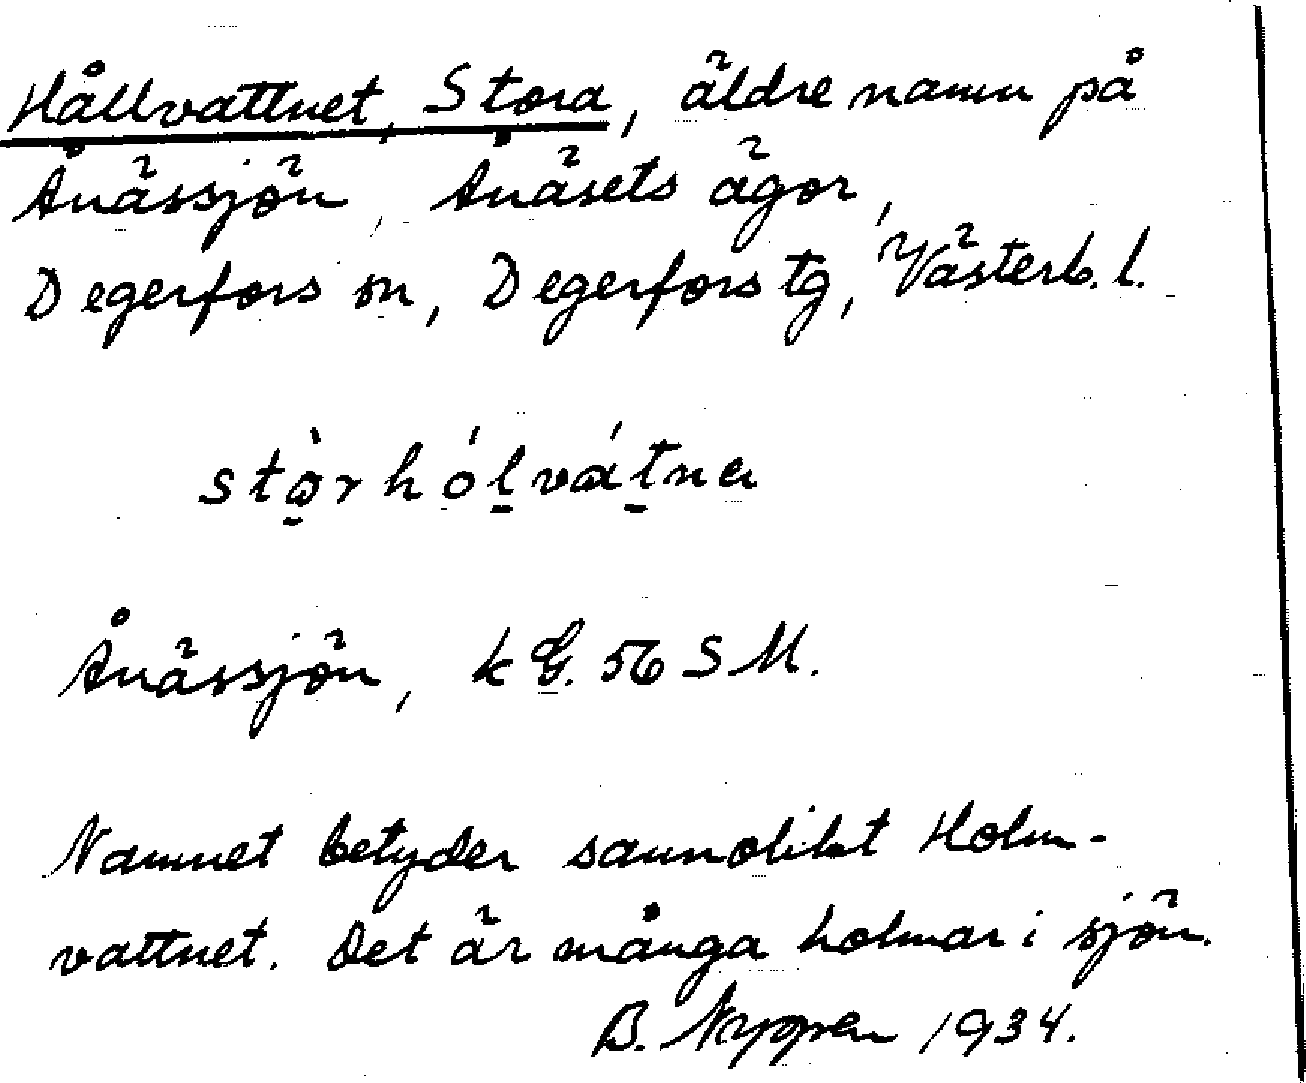 Hållvattnet, Stora, äldre namn på
Ånässjön, Ånäsets ägor,
Degerfors sn, Degerfors tg, Västerb. l.
stòrhólvátna
Ånässjön, k G. 56 S M.
Namnet betyder sannolikt Holm-
vattnet. Det är många holmar i sjön.
B. 1934.